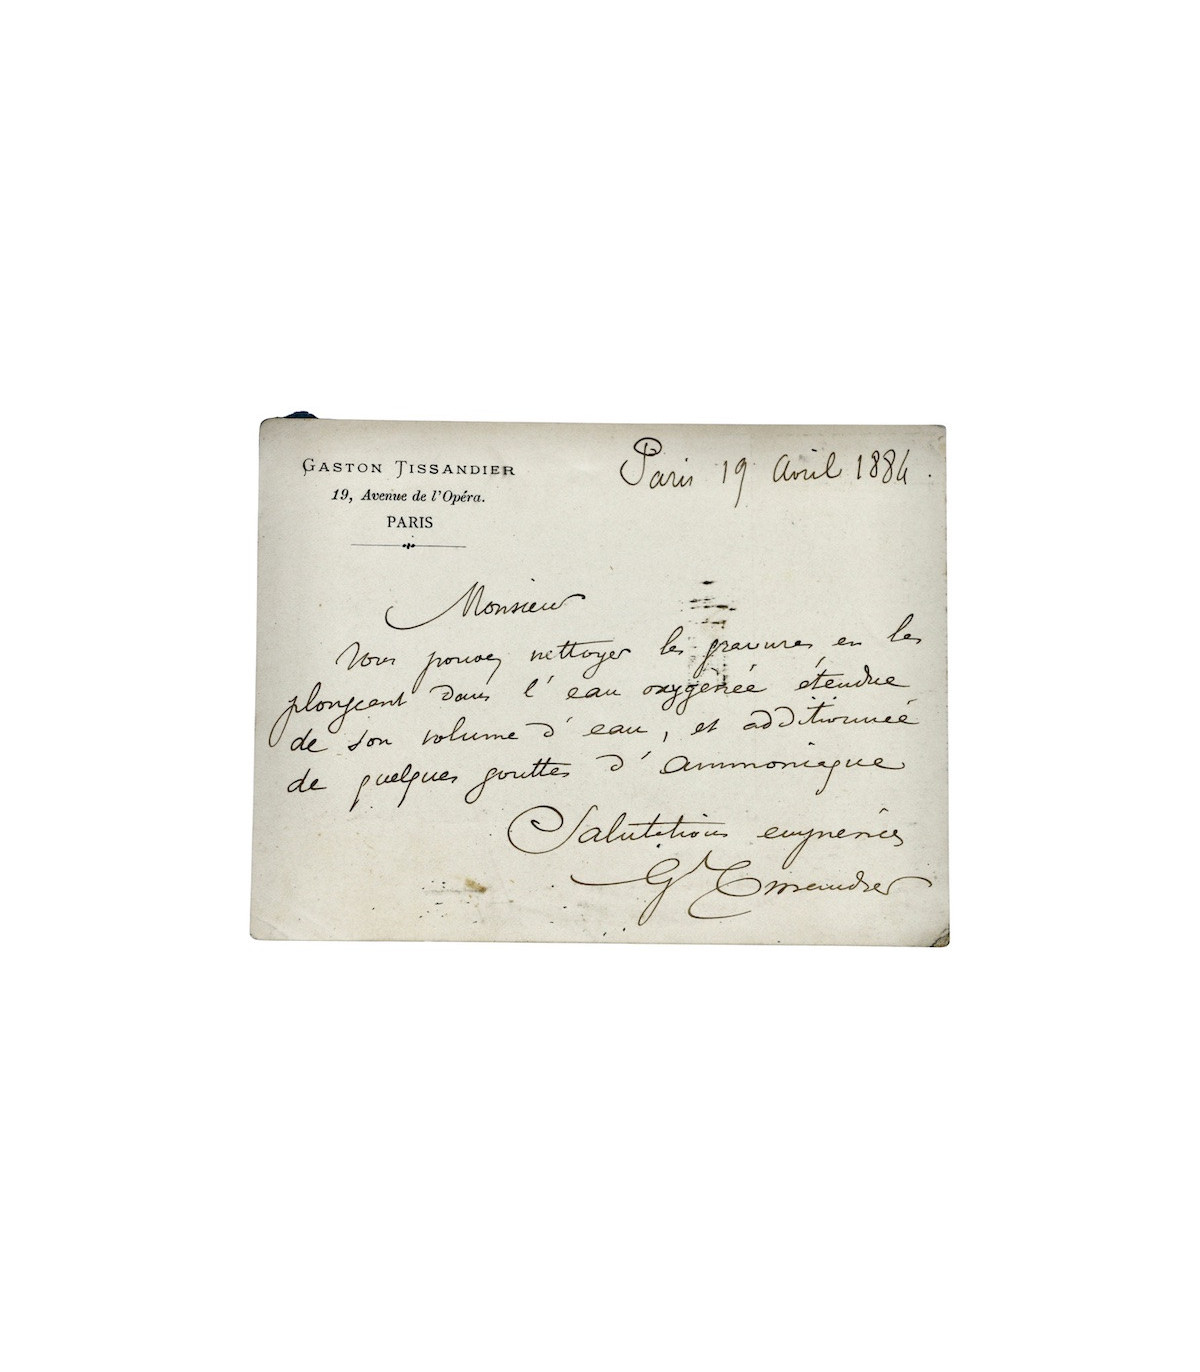 GASTON TISSANDIER
19, Avenue de l'Opéra.
PARIS
Paris 19 avril 1884.
Monsieur
Vous pouvez nettoyer les gravures en les
plongeant dans l'eau oxygénée étendue
de son volume d'eau, et additionnée
de quelques gouttes d'ammoniaque
Salutations empressées
G Tissandier